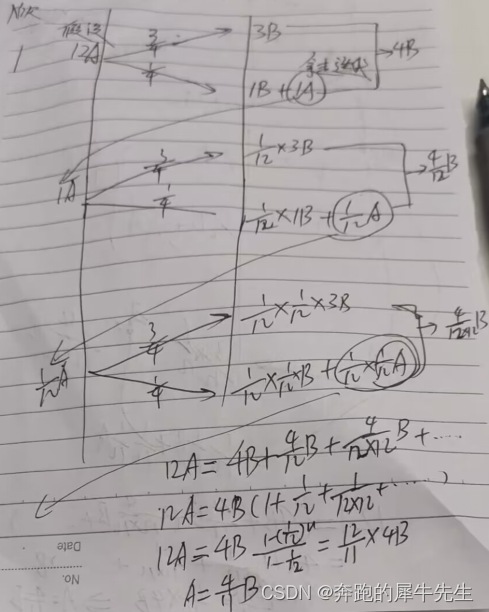 1
假设
12A
3/4
3B
4B
1/4
1B + 1A
1A
3/4
1/12 × 3B
4/12 B
1/4
1/12 × 1B + 1/12 A
1/12 A
3/4
1/12 × 1/12 × 3B
4/12×12 B
1/4
1/12 × 1/12 × B + 1/12 × 1/12 A
12A = 4B + 4/12 B + 4/12×12 B + ......
12A = 4B (1 + 1/12 + 1/12×12 + ......)
12A = 4B (1-(1/12)^n)/(1-1/12) = 12/11 × 4B
A = 4/11 B
Date
No.
CSDN @奔跑的犀牛先生